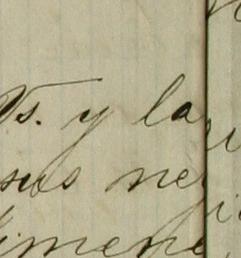 Vs. y la
sus ne
imene